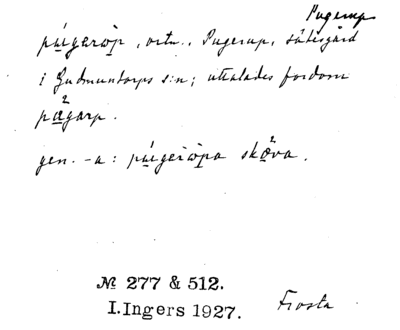 Pugerup
púgeròp, ortn., Pugerup, sätesgård
i Gudmuntorps s:n; uttalades fordom
pågarp.
gen. -a: púgeròpa skôva.
№ 277 & 512.
I.Ingers 1927.
Frosta